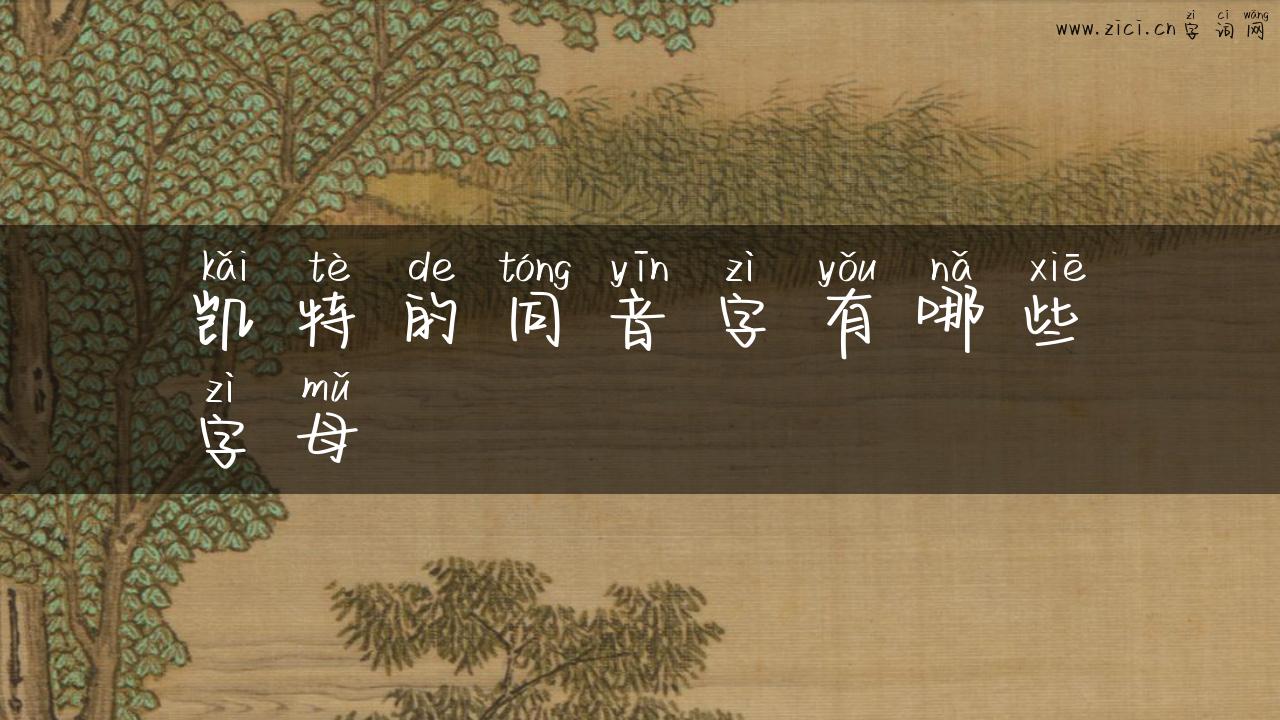 zì cí wǎng
www.zici.cn 字词网
kǎi tè de tóng yīn zì yǒu nǎ xiē
凯特的同音字有哪些
zì mǔ
字母